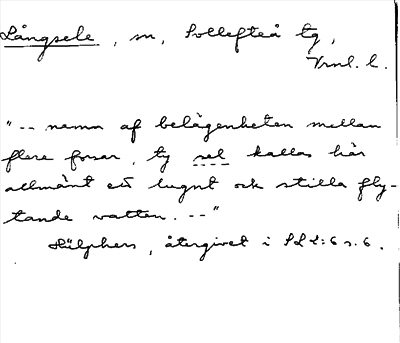 Långsele, sn, Sollefteå tg,
Vrnl. l.
"-- namn af belägenheten mellan
flere forsar, ty sel kallas här
allmänt ett lugnt ock stilla fly-
tande vatten. --"
Hülphers, återgivet i SL 2:6 s. 6.